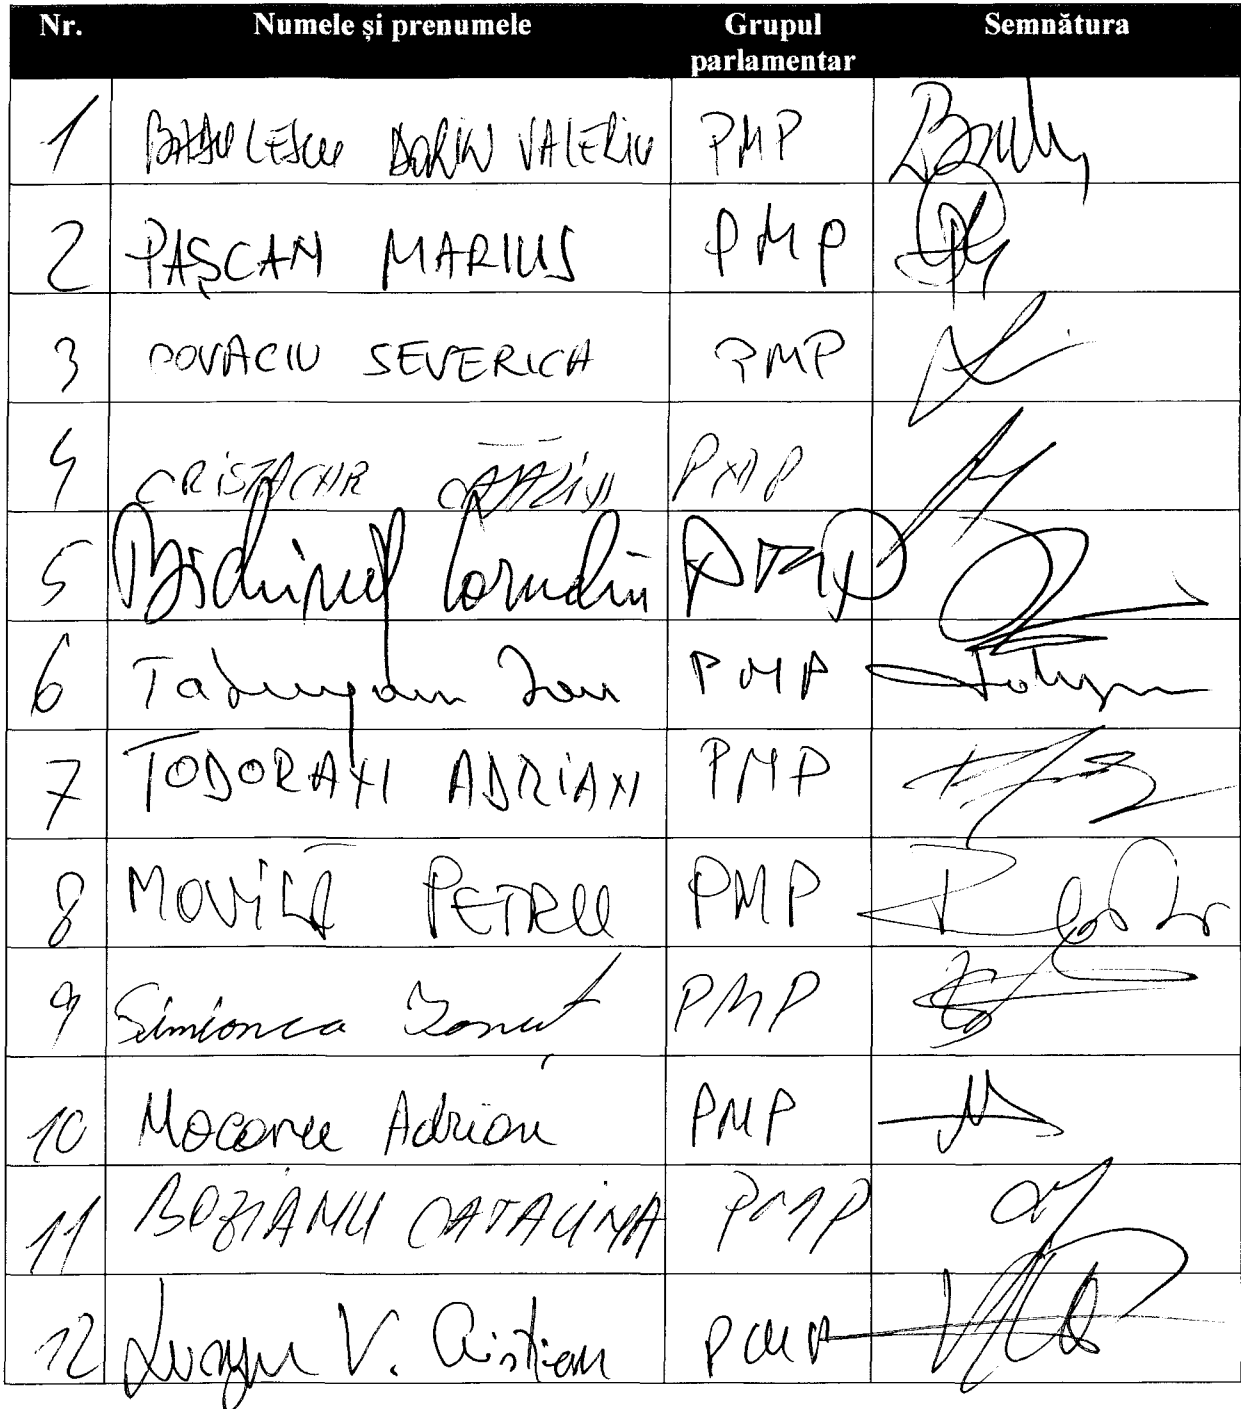 Nr. Numele și prenumele Grupul parlamentar Semnătura
1 BĂDULESCU DORIN VALERIU PMP
2 PAȘCAN MARIUS PMP
3 COVACIU SEVERICA PMP
4 CRISTACHE CĂTĂLIN PMP
5 Bichineț Corneliu PMP
6 Tabugan Ion PMP
7 TODORAN ADRIAN PMP
8 MOVILĂ PETRU PMP
9 Simionca Ionuț PMP
10 Mocanu Adrian PMP
11 BOZIANU CATALINA PMP
12 Lungu V. Cristian PMP